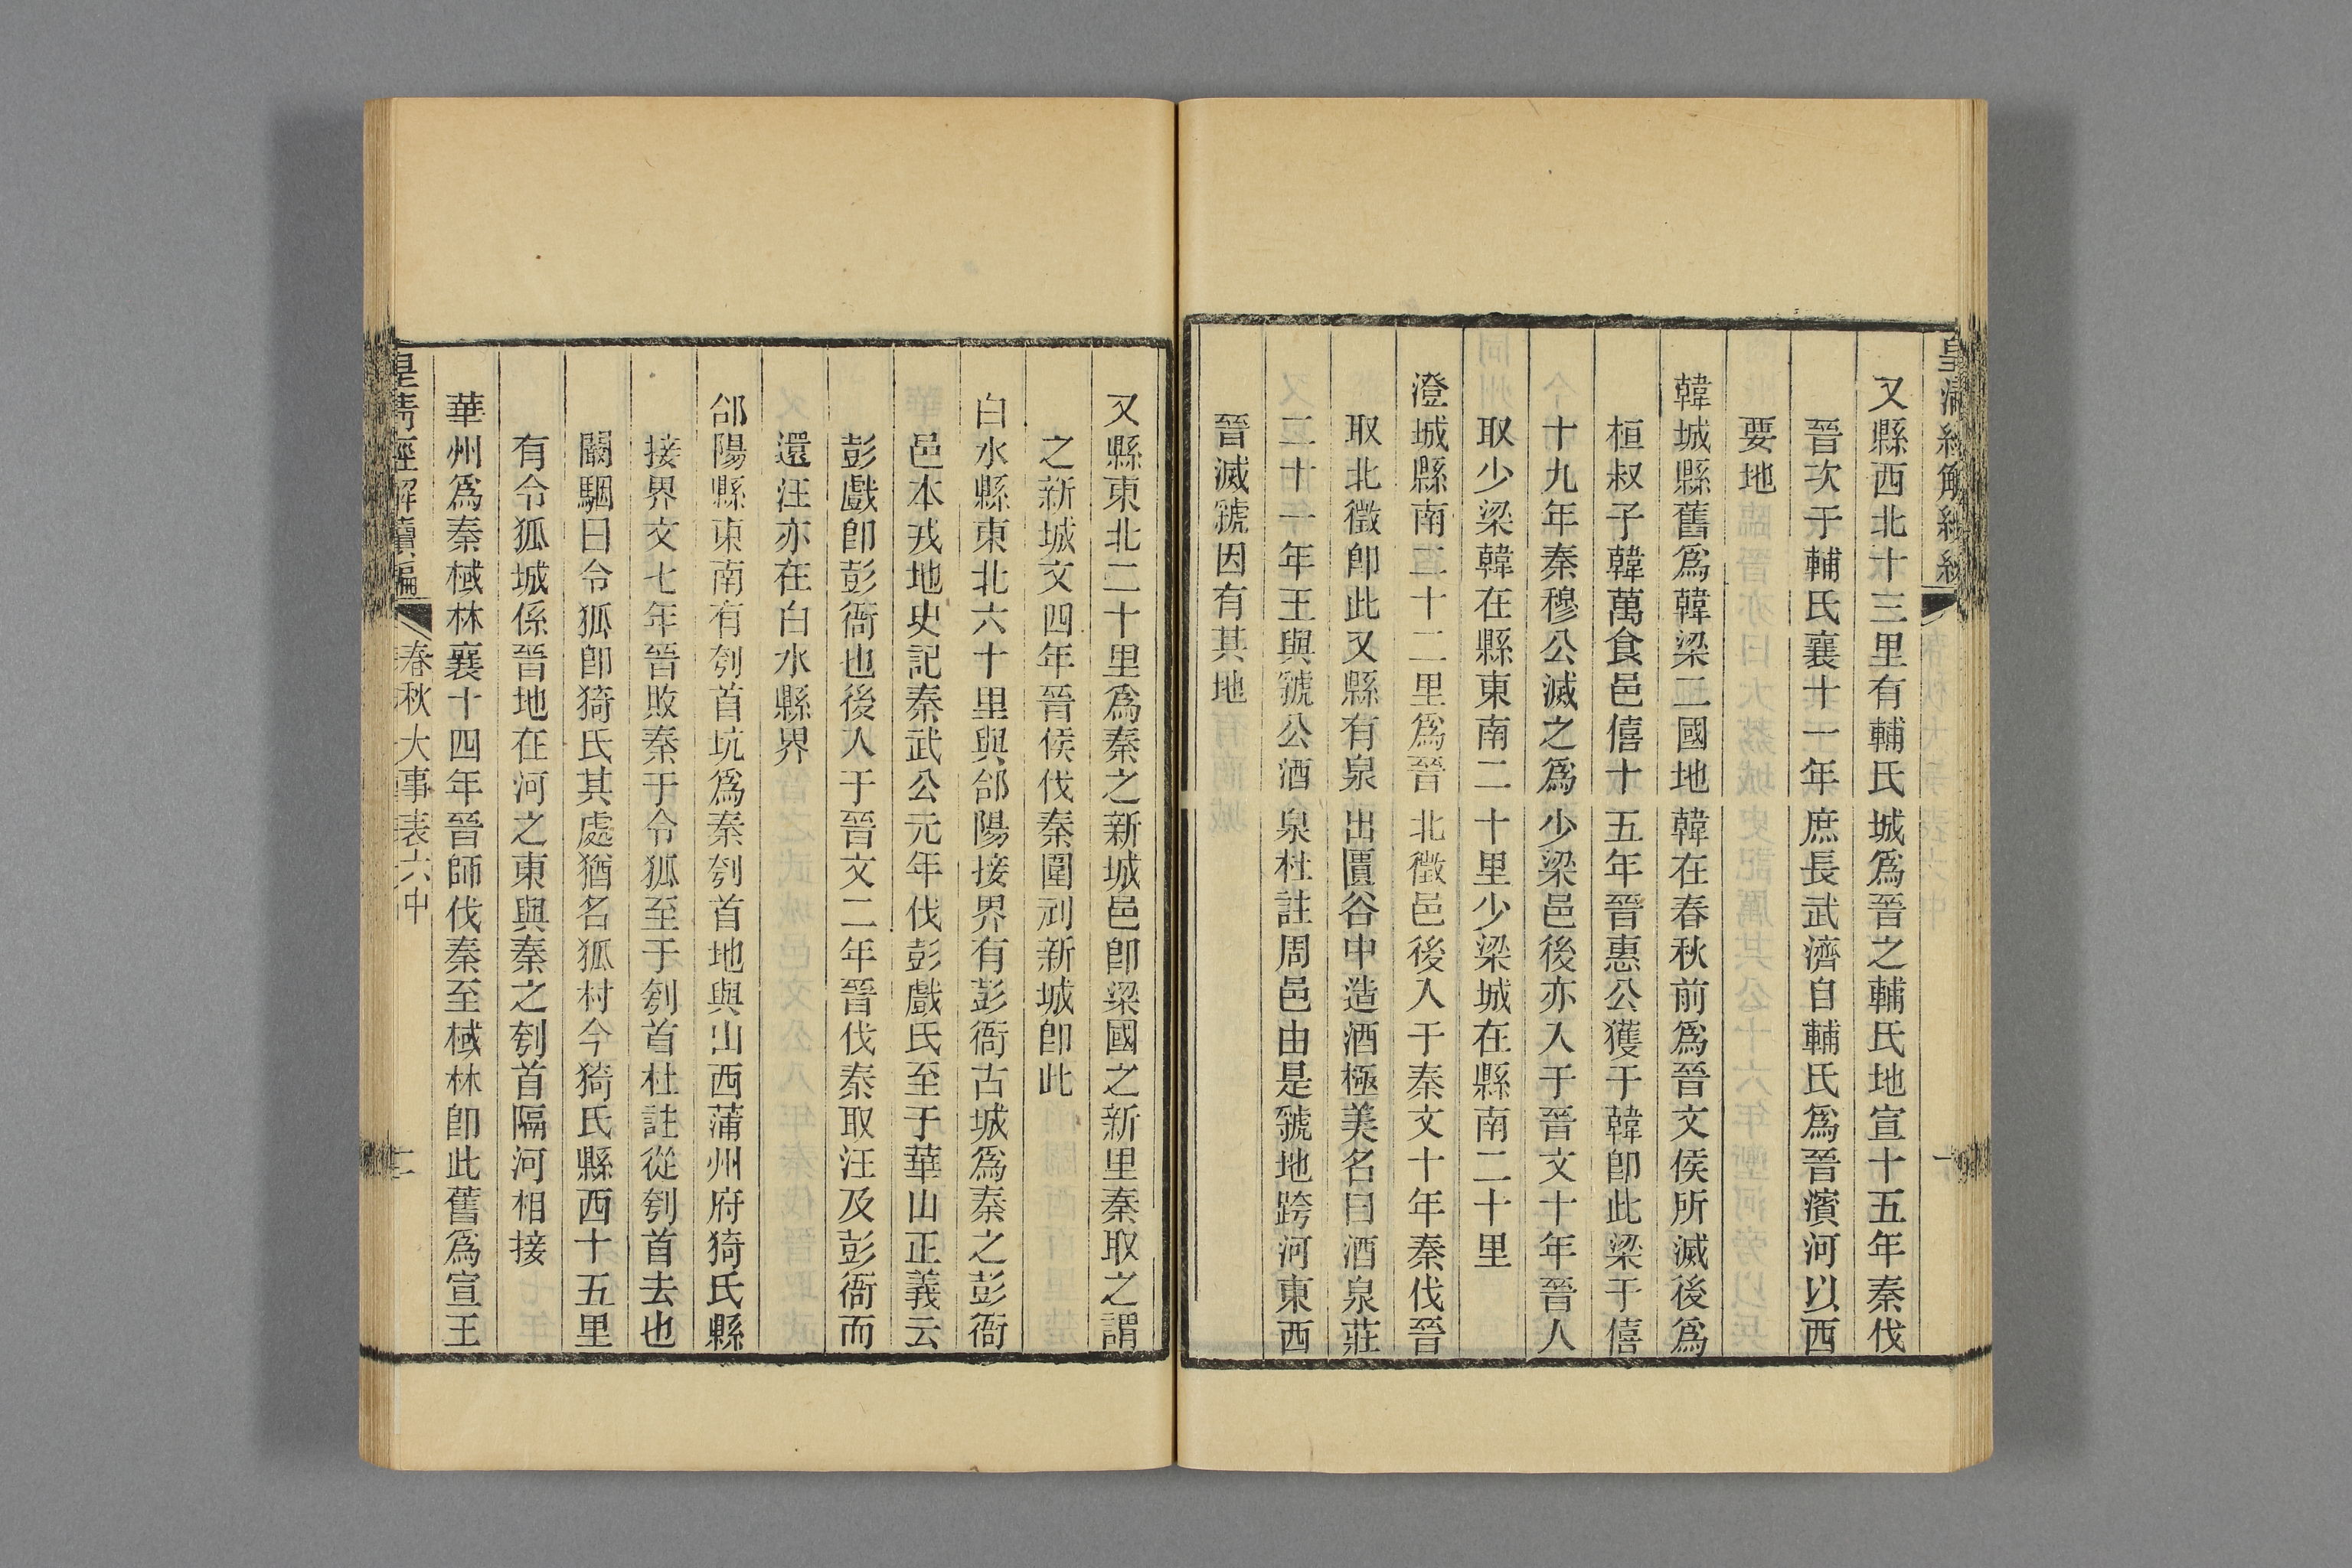 又縣西北十三里有輔氏城爲晉之輔氏地宣十五年秦伐
晉次于輔氏襄十一年庶長武濟自輔氏爲晉濱河以西
要地
韓城縣舊爲韓梁二國地韓在春秋前爲晉文侯所滅後爲
桓叔子韓萬食邑僖十五年晉惠公獲于韓卽此梁于僖
十九年秦穆公滅之爲少梁邑後亦入于晉文十年晉人
取少梁韓在縣東南二十里少梁城在縣南二十里
澄城縣南二十二里爲晉北徵邑後入于秦文十年秦伐晉
取北徵卽此又縣有泉出匱谷中造酒極美名曰酒泉莊
二十一年王與虢公酒泉杜註周邑由是虢地跨河東西
晉滅虢因有其地
又縣東北二十里爲秦之新城邑卽梁國之新里秦取之謂
之新城文四年晉侯伐秦圍刓新城卽此
白水縣東北六十里與郃陽接界有彭衙古城爲秦之彭衙
邑本戎地史記秦武公元年伐彭戲氏至于華山正義云
彭戲卽彭衙也後入于晉文二年晉伐秦取汪及彭衙而
還汪亦在白水縣界
郃陽縣東南有刳首坑爲秦刳首地與山西蒲州府猗氏縣
接界文七年晉敗秦于令狐至于刳首杜註從刳首去也
闞駰曰令狐卽猗氏其處猶名狐村今猗氏縣西十五里
有令狐城係晉地在河之東與秦之刳首隔河相接
華州爲秦棫林襄十四年晉師伐秦至棫林卽此舊爲宣王
皇清經解續編 春秋大事表六中 二